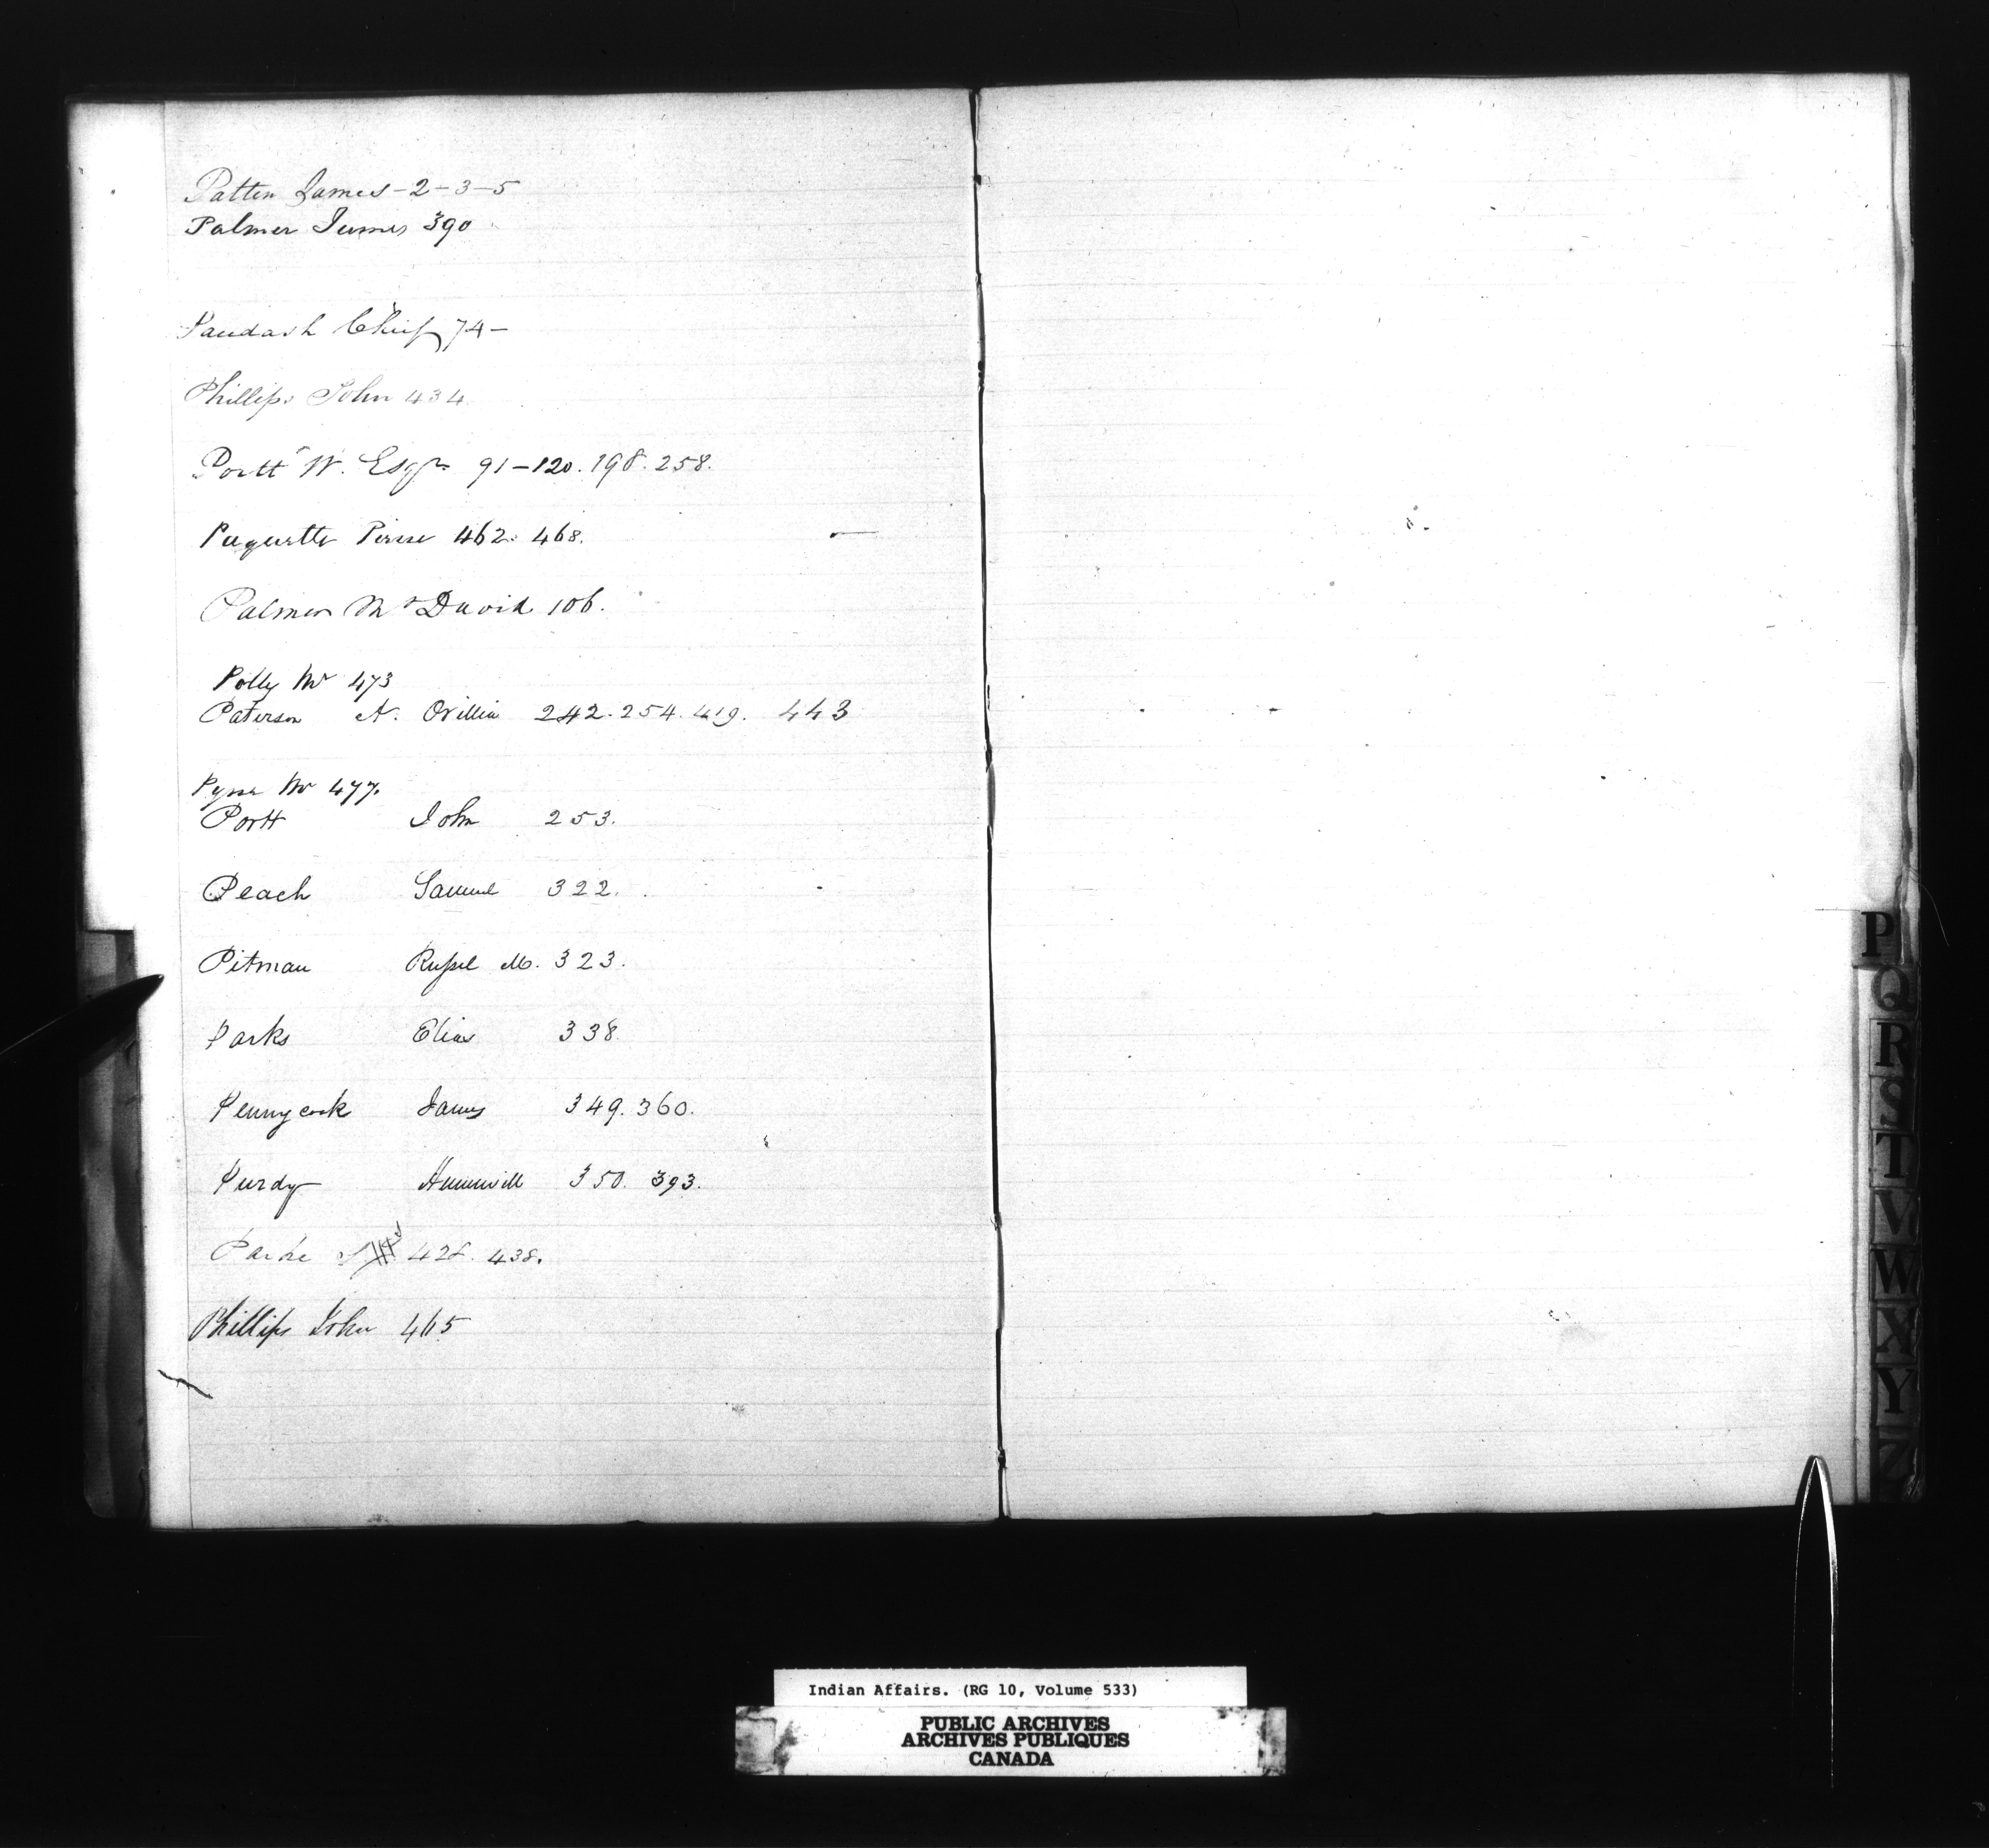 Patten James - 2 - 3 - 5
Palmer James 390
Paudash Chief 74 -
Phillips John 434
Portt W. Esqr 91 - 120. 198. 258.
Paquette Pierre 462. 468.
Palmer Mr David 106.
Polly Mr 473
Paterson A. Orillia 242. 254. 419. 443
Pyne Mr 477.
Portt John 253.
Peach Samuel 322.
Pitman Russel M. 323.
Parks Elias 338.
Pennycook James 349. 360.
Purdy 350. 393.
Parke 428. 438.
Phillips John 465
P
Q
R
S
T
V
W
X
Y
Z
Indian Affairs. (RG 10, Volume 533)
PUBLIC ARCHIVES
ARCHIVES PUBLIQUES
CANADA